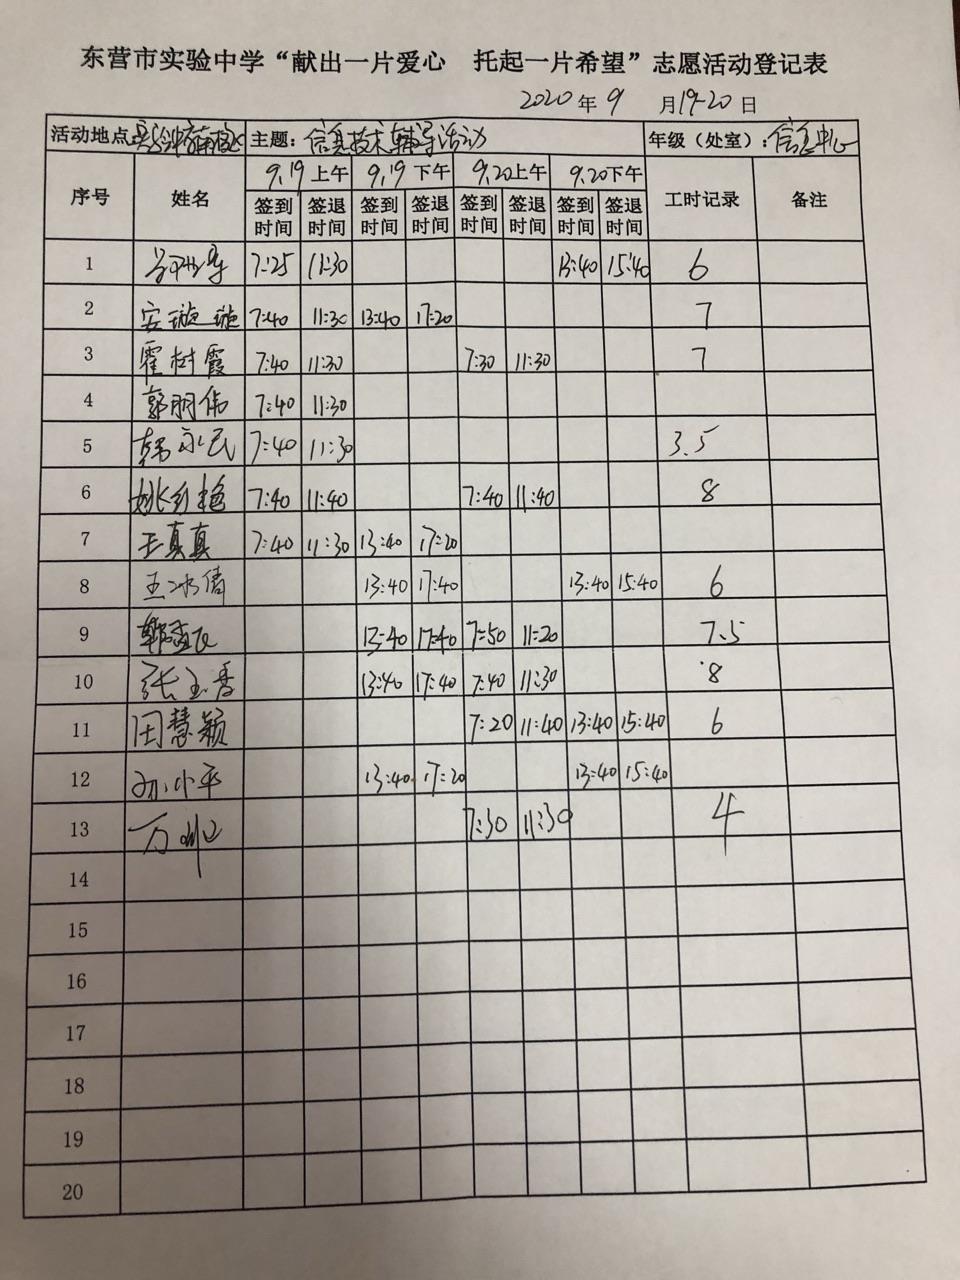 东营市实验中学“献出一片爱心 托起一片希望”志愿活动登记表
2020 年 9 月 19-20 日
活动地点: 主题: 信息技术辅导活动 年级（处室）: 信息中心
序号 姓名 9.19 上午 9.19 下午 9.20 上午 9.20 下午 工时记录 备注
签到时间 签退时间 签到时间 签退时间 签到时间 签退时间 签到时间 签退时间
1 7:25 11:30 13:40 15:40 6
2 安璇璇 7:40 11:30 13:40 17:20 7
3 霍树霞 7:40 11:30 7:30 11:30 7
4 郭朋伟 7:40 11:30
5 韩永民 7:40 11:30 3.5
6 姚红艳 7:40 11:40 7:40 11:40 8
7 王真真 7:40 11:30 13:40 17:20
8 王冰倩 13:40 17:40 13:40 15:40 6
9 13:40 17:40 7:50 11:20 7.5
10 张玉香 13:40 17:40 7:40 11:30 8
11 田慧颖 7:20 11:40 13:40 15:40 6
12 孙小平 13:40 17:20 13:40 15:40
13 7:30 11:30 4
14
15
16
17
18
19
20